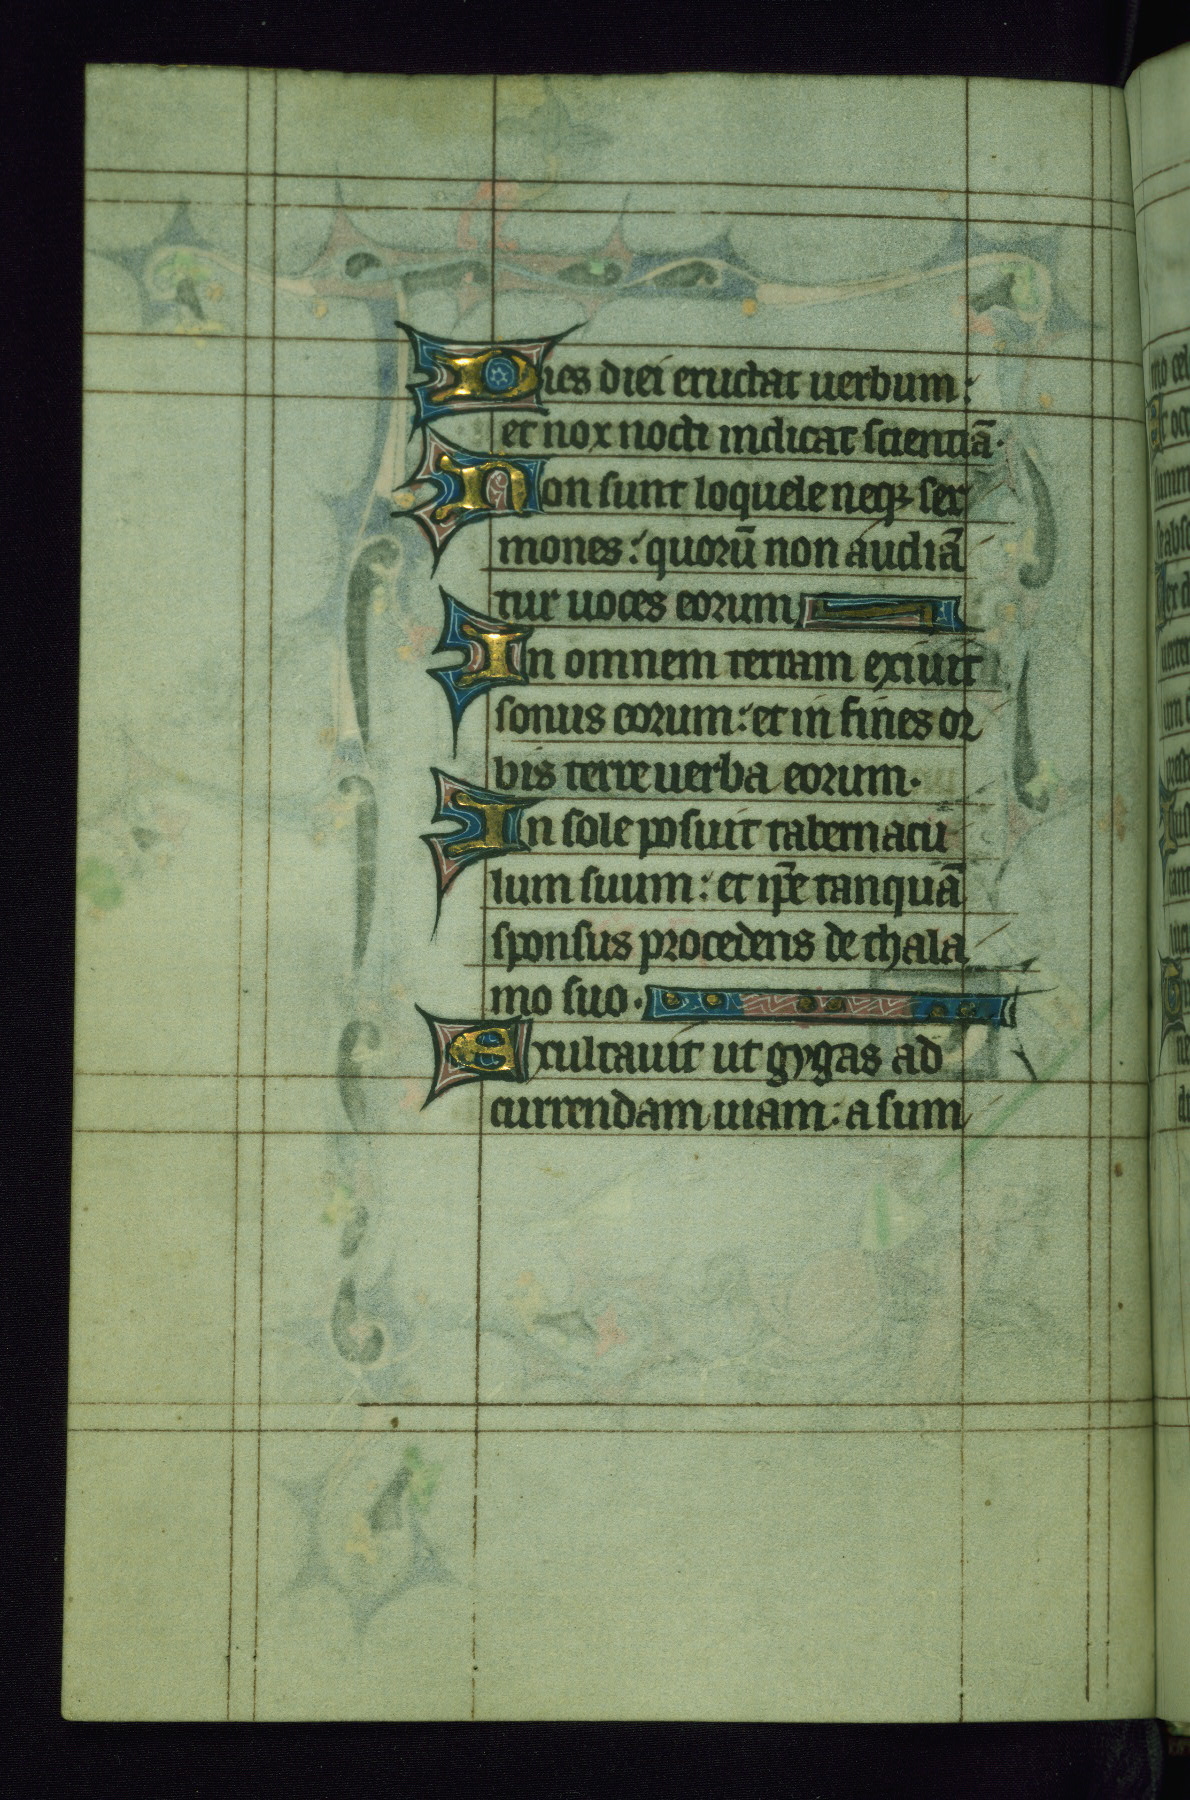 Dies diei eructat uerbum:
et nox nocti indicat scientiā.
Non sunt loquele neqꝫ ser
mones: quorū non audiā
tur uoces eorum
In omnem terram exiuit
sonus eorum: et in fines or
bis terre uerba eorum.
In sole posuit tabernacu
lum suum: et ip̄e tanquā
sponsus procedens de thala
mo suo.
Exultauit ut gygas ad
currendam uiam: a sum